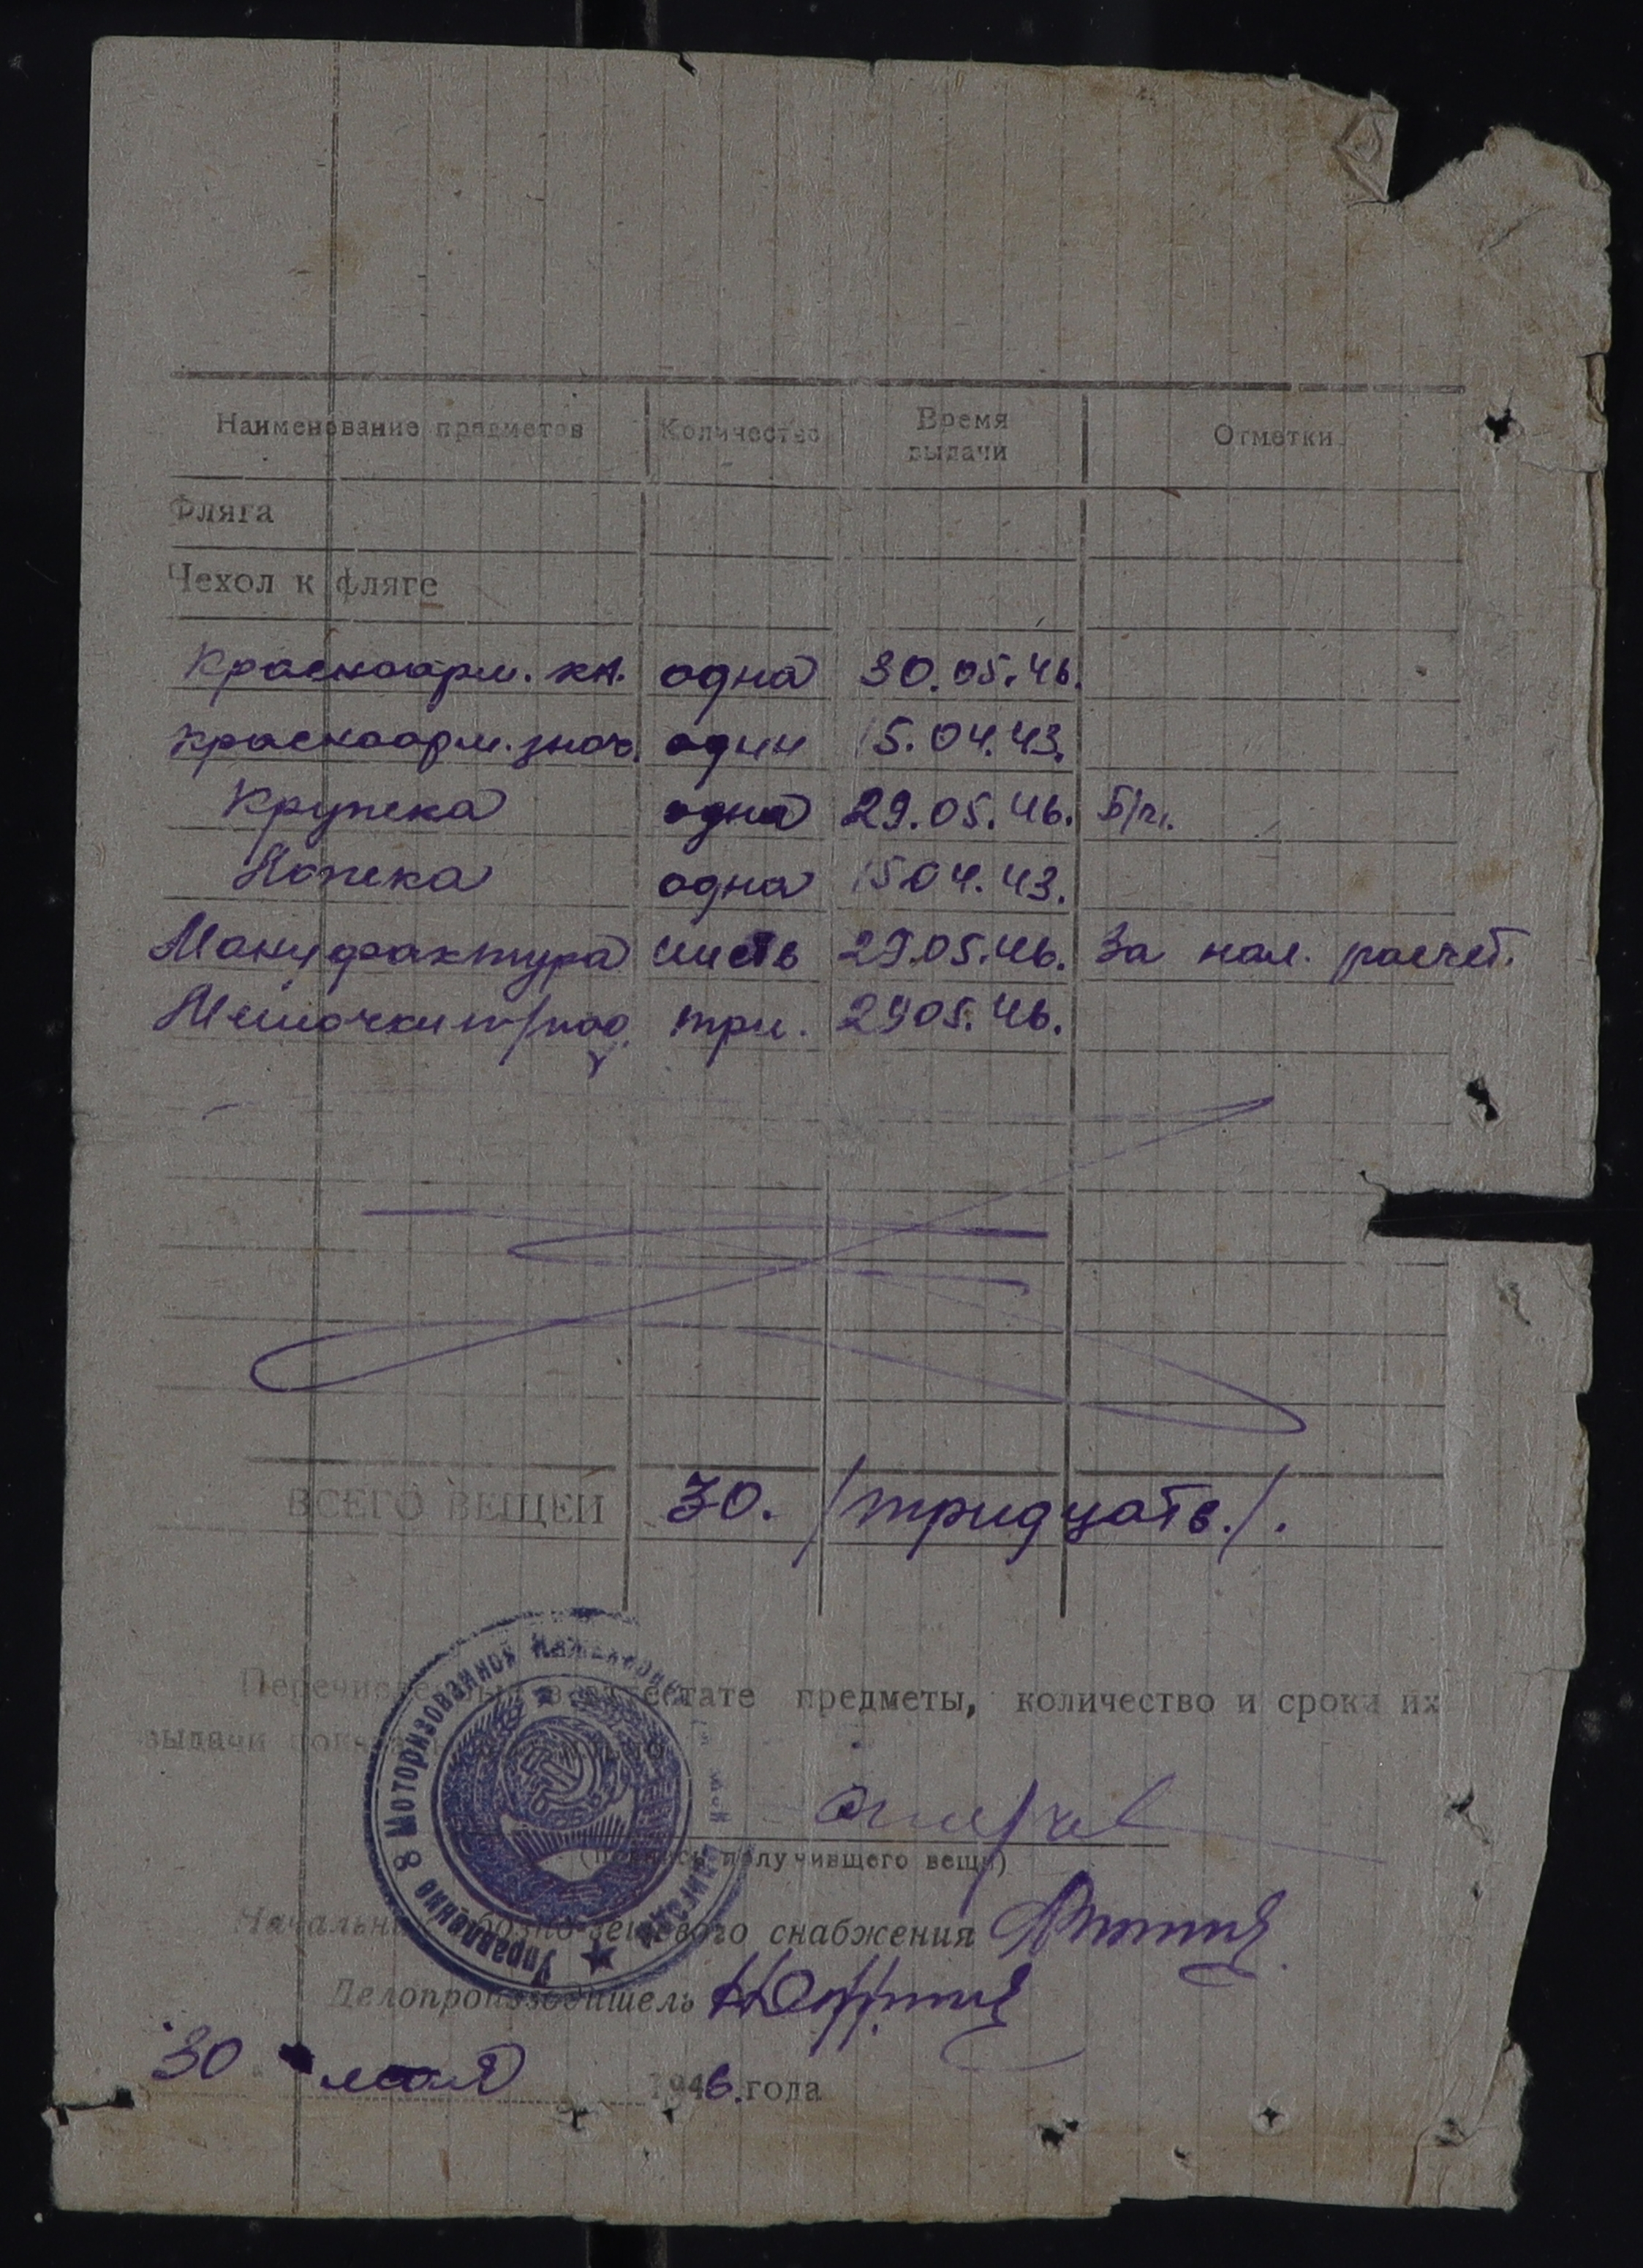 Наименование предметов Количество Время выдачи Отметки
Фляга
Чехол к фляге
Красноарм. кн. одна 30.05.46.
Красноарм. знач. один 15.04.43.
Кружка одна 29.05.46. Б/п.
Ложка одна 15.04.43.
Мануфактура шесть 29.05.46. За нал. расчет.
Мешочки три. 29.05.46.
ВСЕГО ВЕЩЕЙ 30. /тридцать./.
Перечисленные в аттестате предметы, количество и сроки их
выдачи
(подпись получившего вещи)
Начальник обозно-вещевого снабжения
Делопроизводитель
"30" мая 1946. года
Управление 8 Моторизованной Инженерной Бригады